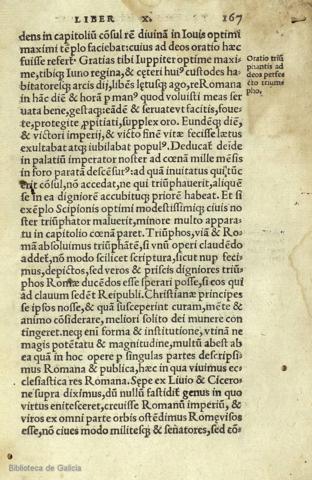 LIBER X. 167
dens in capitoliū cōsul rē diuinā in Iouis optimi
maximi tēplo faciebat: cuius ad deos oratio hæc
fuisse refert. Gratias tibi Iuppiter optime maxi-
me, tibiqꝫ Iuno regina, & cęteri huiꝰ custodes ha
bitatoresqꝫ arcis dij, libēs lętusqꝫ ago, re Romana
in hāc diē & horā p manꝰ quod voluisti meas ser
uata bene, gestaqꝫ: eādē & seruatevt facitis, foue-
te, protegite ,ppitiati, supplex oro. Eundēqꝫ diē,
& victori imperij, & victo finē vitæ fecisse lætus
exultabat atqꝫ iubilabat populꝰ. Deducať deide
in palatiū imperator noster ad cœnā mille mēsis
in foro parata descēsurꝰ: ad quā inuitatus qui tūc
erit cōsul, nō accedat, ne qui triūphauerit, aliquē
se in ea digniorē accubituqꝫ priorē habeat. Et si
exēplo Scipionis optimi modestissimiqꝫ ciuis no
ster triūphator maluerit, minore multo appara-
tu in capitolio cœnā paret. Triūphos, viā & Ro-
mā absoluimus triūphātē, si vnū operi claudēdo
addet, nō modo scilicet scriptura, sicut nup feci-
mus, depictos, sed veros & priscis digniores triū-
phos Romæ ducēdos esse sperari posse, si eos qui
ad clauum sedēt Reipubli. Christianæ principes
se ipsos nosse, & quā susceperint curam, mēte &
animo cōsiderare, meliori solito dei munere con
tingeret. neqꝫ eni forma & institutione, vtinā ne
magis potētatu & magnitudine, multū abest ab
ea quā in hoc opere p singulas partes descripsi
mus Romana & publica, hæc in qua viuimus ec-
clesiastica res Romana. Sepe ex Liuio & Cicero-
ne supra diximus, dū nullū fastidiť genus in quo
virtus enitesceret, creuisse Romanū imperiū, &
viros ex omni parte orbis ostēdimus Romę visos
esse, nō ciues modo militesqꝫ & senatores, sed cō-
Oratio triū
phantis ad
deos perfes
cto triumi
pho.
Biblioteca de Galicia